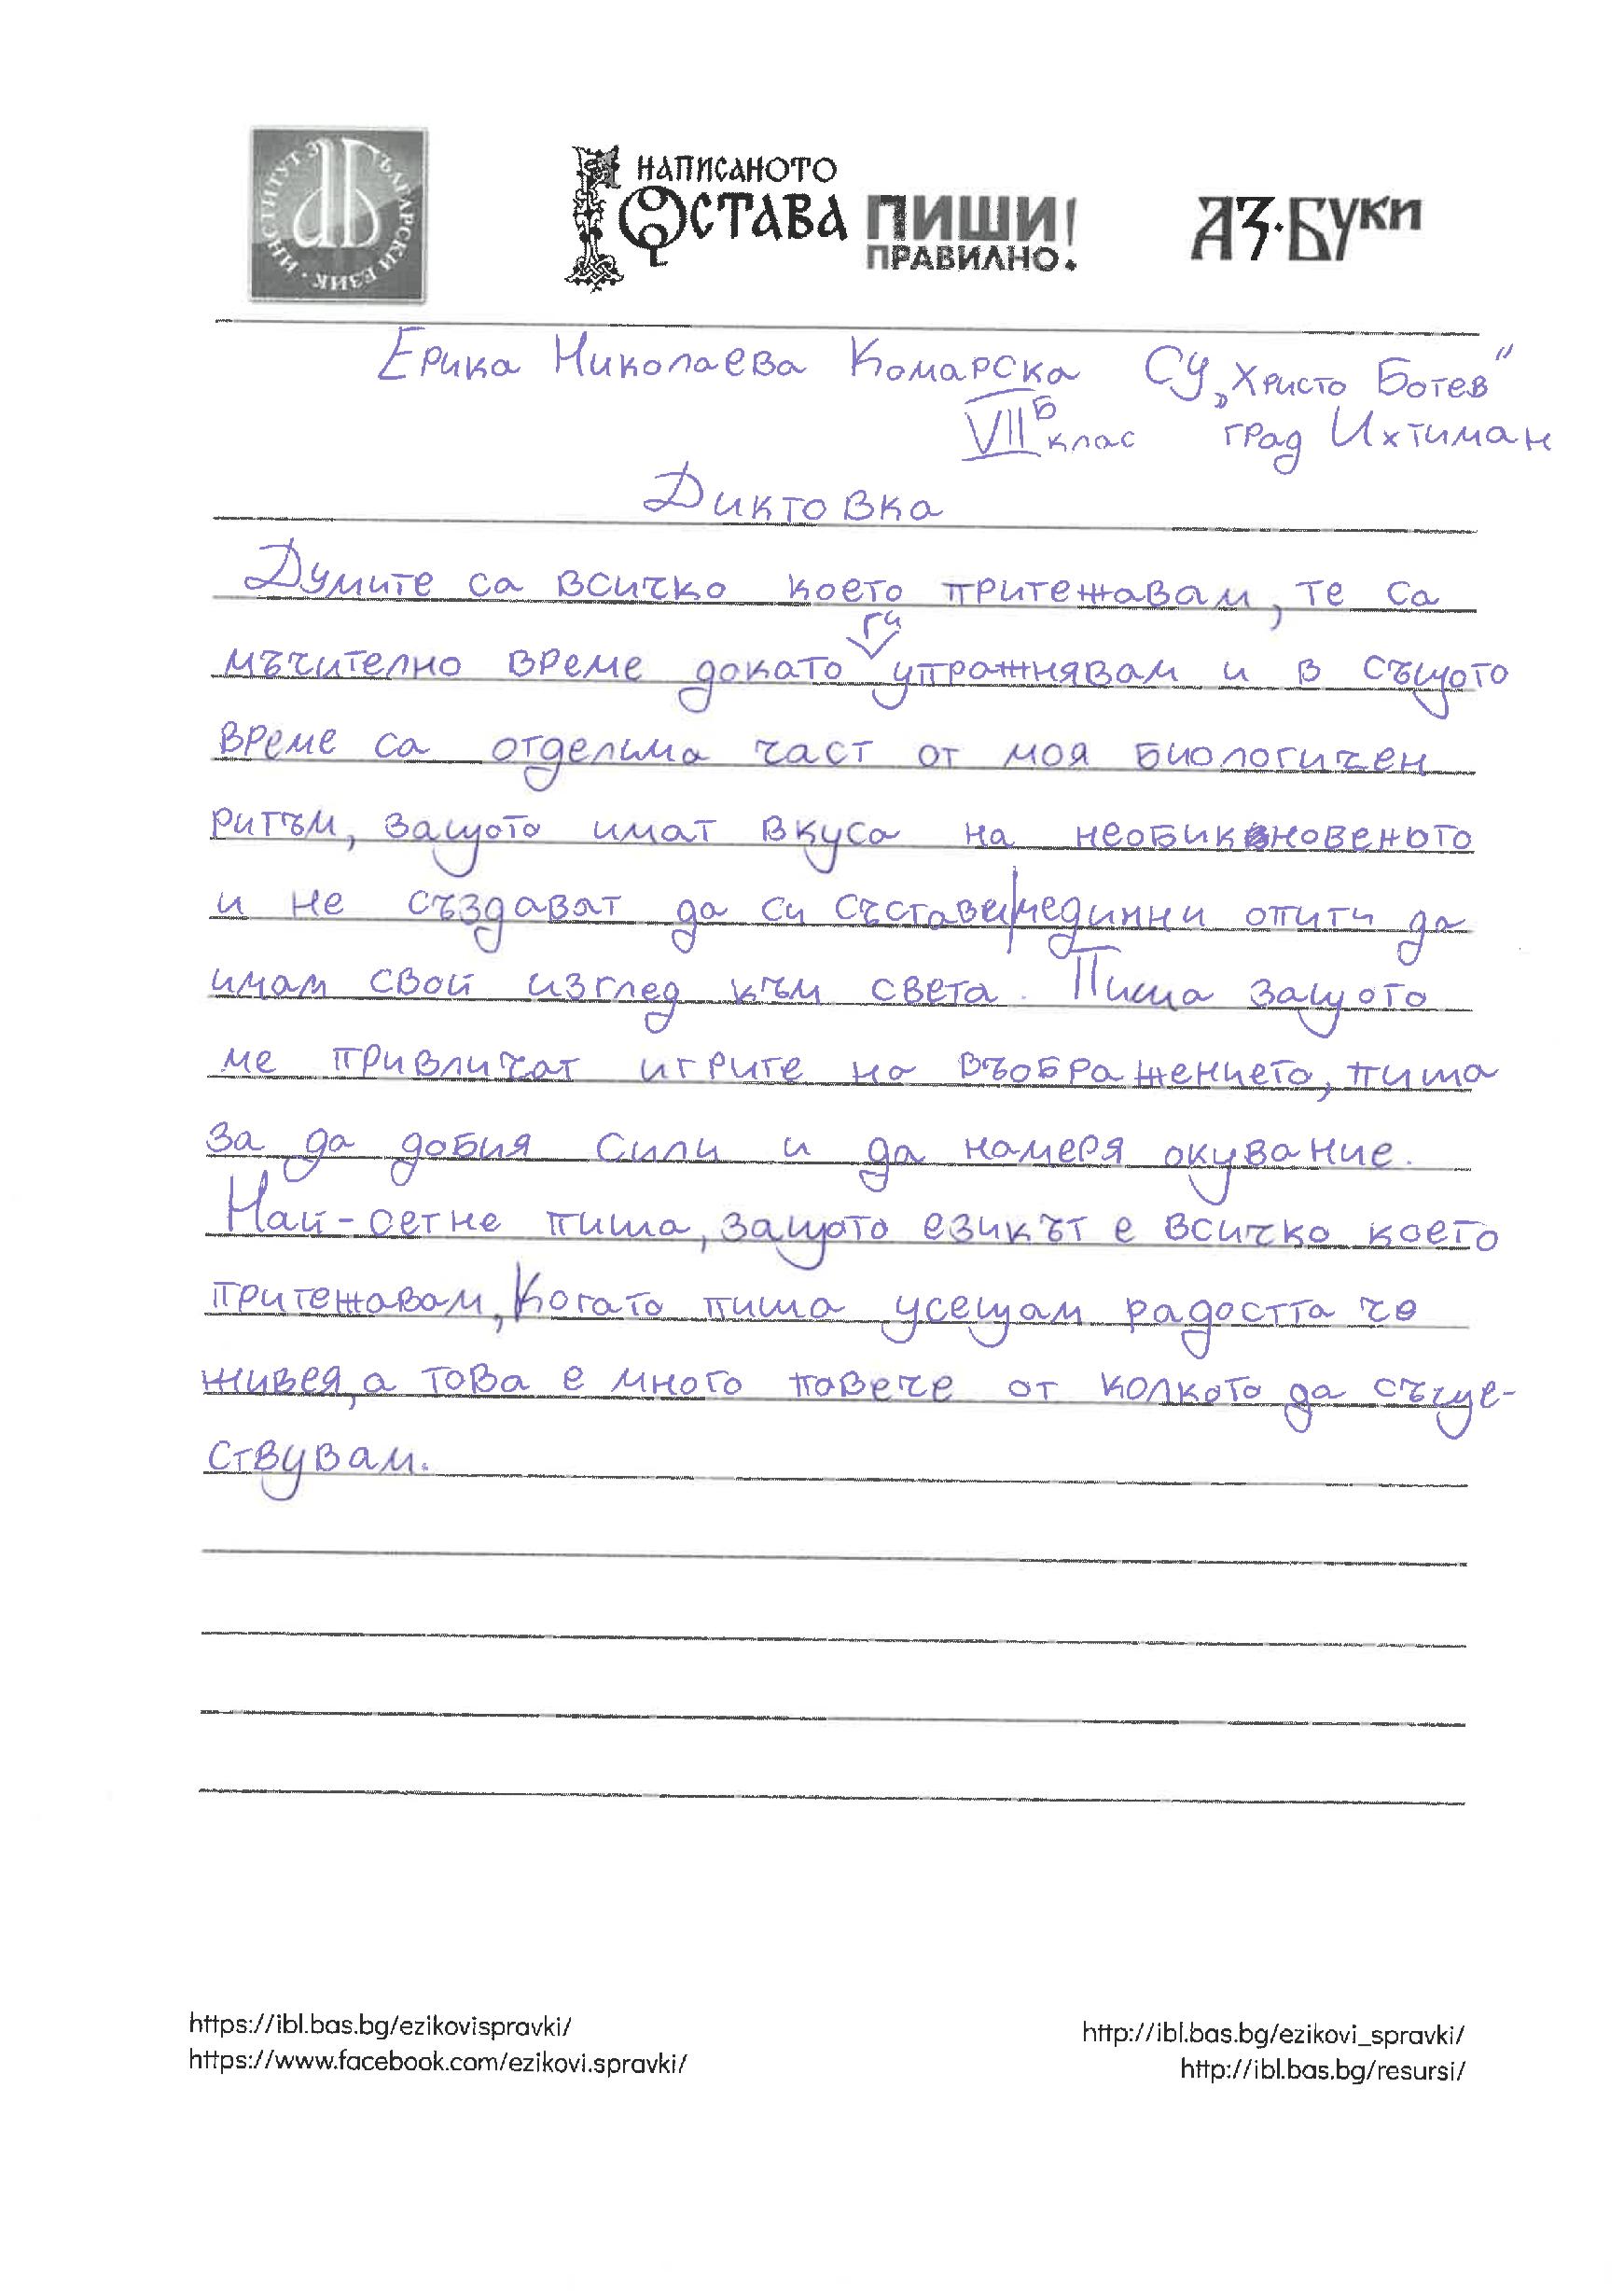 ИНСТИТУТ ЗА БЪЛГАРСКИ ЕЗИК
НАПИСАНОТО
ОСТАВА ПИШИ!
ПРАВИЛНО.
АЗ·БУКИ
Ерика Николаева Комарска СУ „Христо Ботев"
VII б клас град Ихтиман
Диктовка
Думите са всичко което притежавам, те са
мъчително време докато ги упражнявам и в същото
време са отделима част от моя биологичен
ритъм, защото имат вкуса на необикновеното
и не създават да си съставя единни опити да
имам свой изглед към света. Пиша защото
ме привличат игрите на въображението, пиша
за да добия сили и да намеря окување.
Най-сетне пиша, защото езикът е всичко което
притежавам, Когато пиша усещам радостта че
живея, а това е много повече от колкото да съще-
ствувам.
https://ibl.bas.bg/ezikovispravki/
https://www.facebook.com/ezikovi.spravki/
http://ibl.bas.bg/ezikovi_spravki/
http://ibl.bas.bg/resursi/